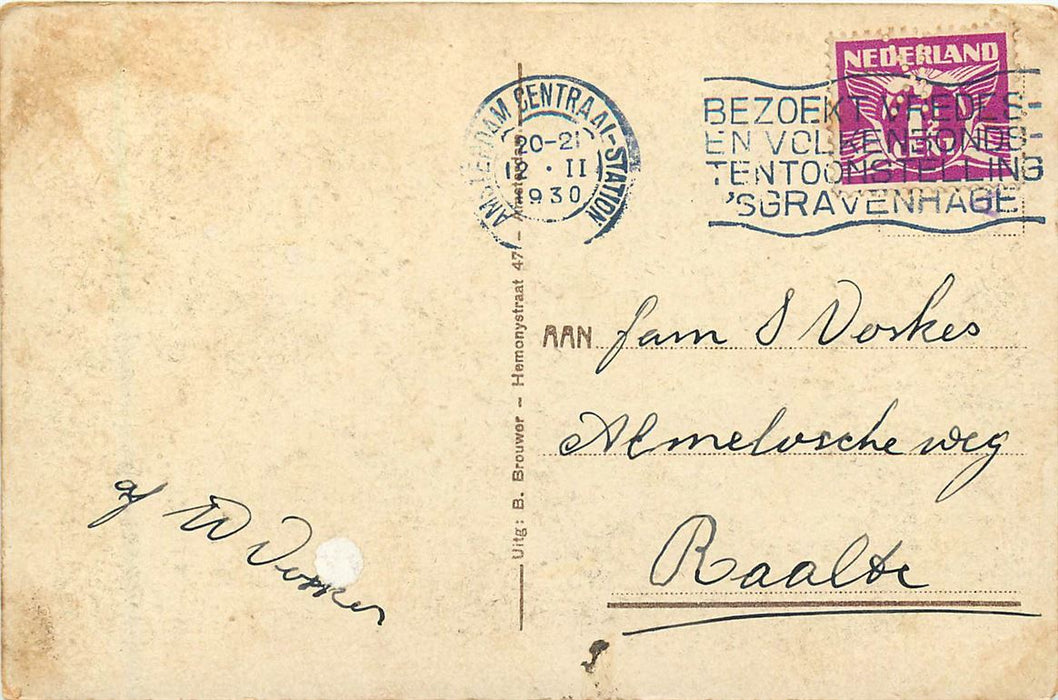 AMSTERDAM CENTRAAL-STATION
20-21
II
1930
NEDERLAND
1½
CENT
BEZOEKT VREDES-
EN VOLKENBONDS-
TENTOONSTELLING
'SGRAVENHAGE
Uitg: B. Brouwer - Hemonystraat 47 - Amsterdam
AAN fam S Voskes
Almelosche weg
Raalte
af W Voskes